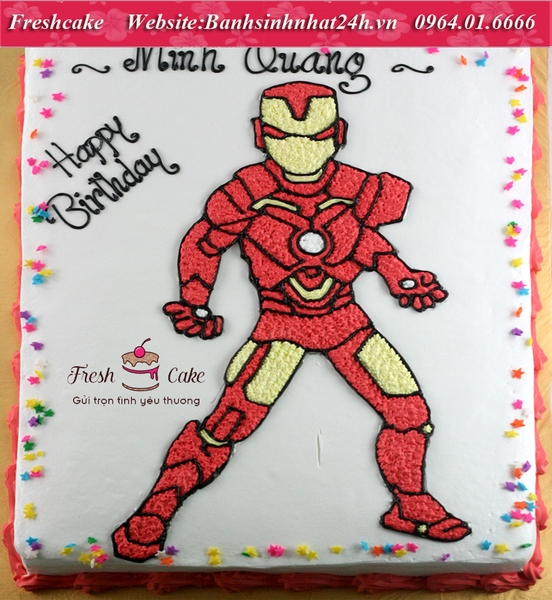 Freshcake Website:Banhsinhnhat24h.vn 0964.01.6666
Minh Quang
Happy
Birthday
Fresh Cake
Gửi trọn tình yêu thương